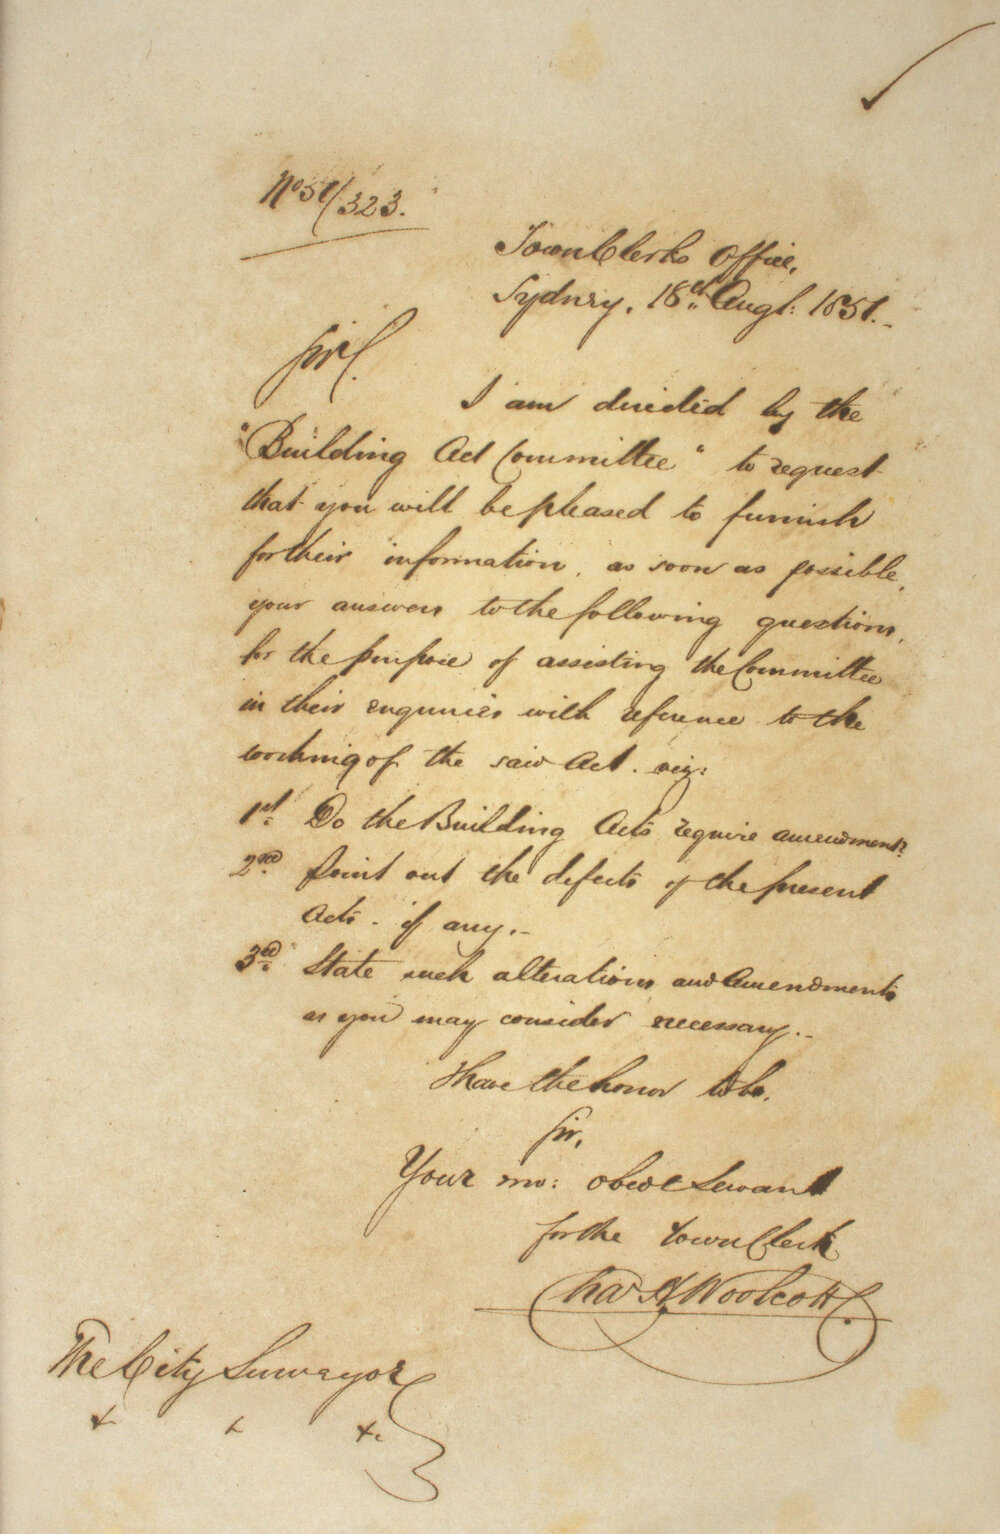 No 51/323.
Town Clerks Office,
Sydney, 18th Augt: 1851.
Sir,
I am directed by the
"Building Act Committee" to request
that you will be pleased to furnish
for their information, as soon as possible,
your answers to the following questions,
for the purpose of assisting the Committee
in their enquiries with reference to the
working of the said Act. viz:
1st. Do the Building Acts require amendment?
2nd. Point out the defects of the present
Acts - if any.-
3rd. State such alterations and Amendments
as you may consider necessary.-
I have the honor to be,
Sir,
Your mo: obedt Servant
for the Town Clerk
Chas H Woolcott.
The City Surveyor
+ + +.